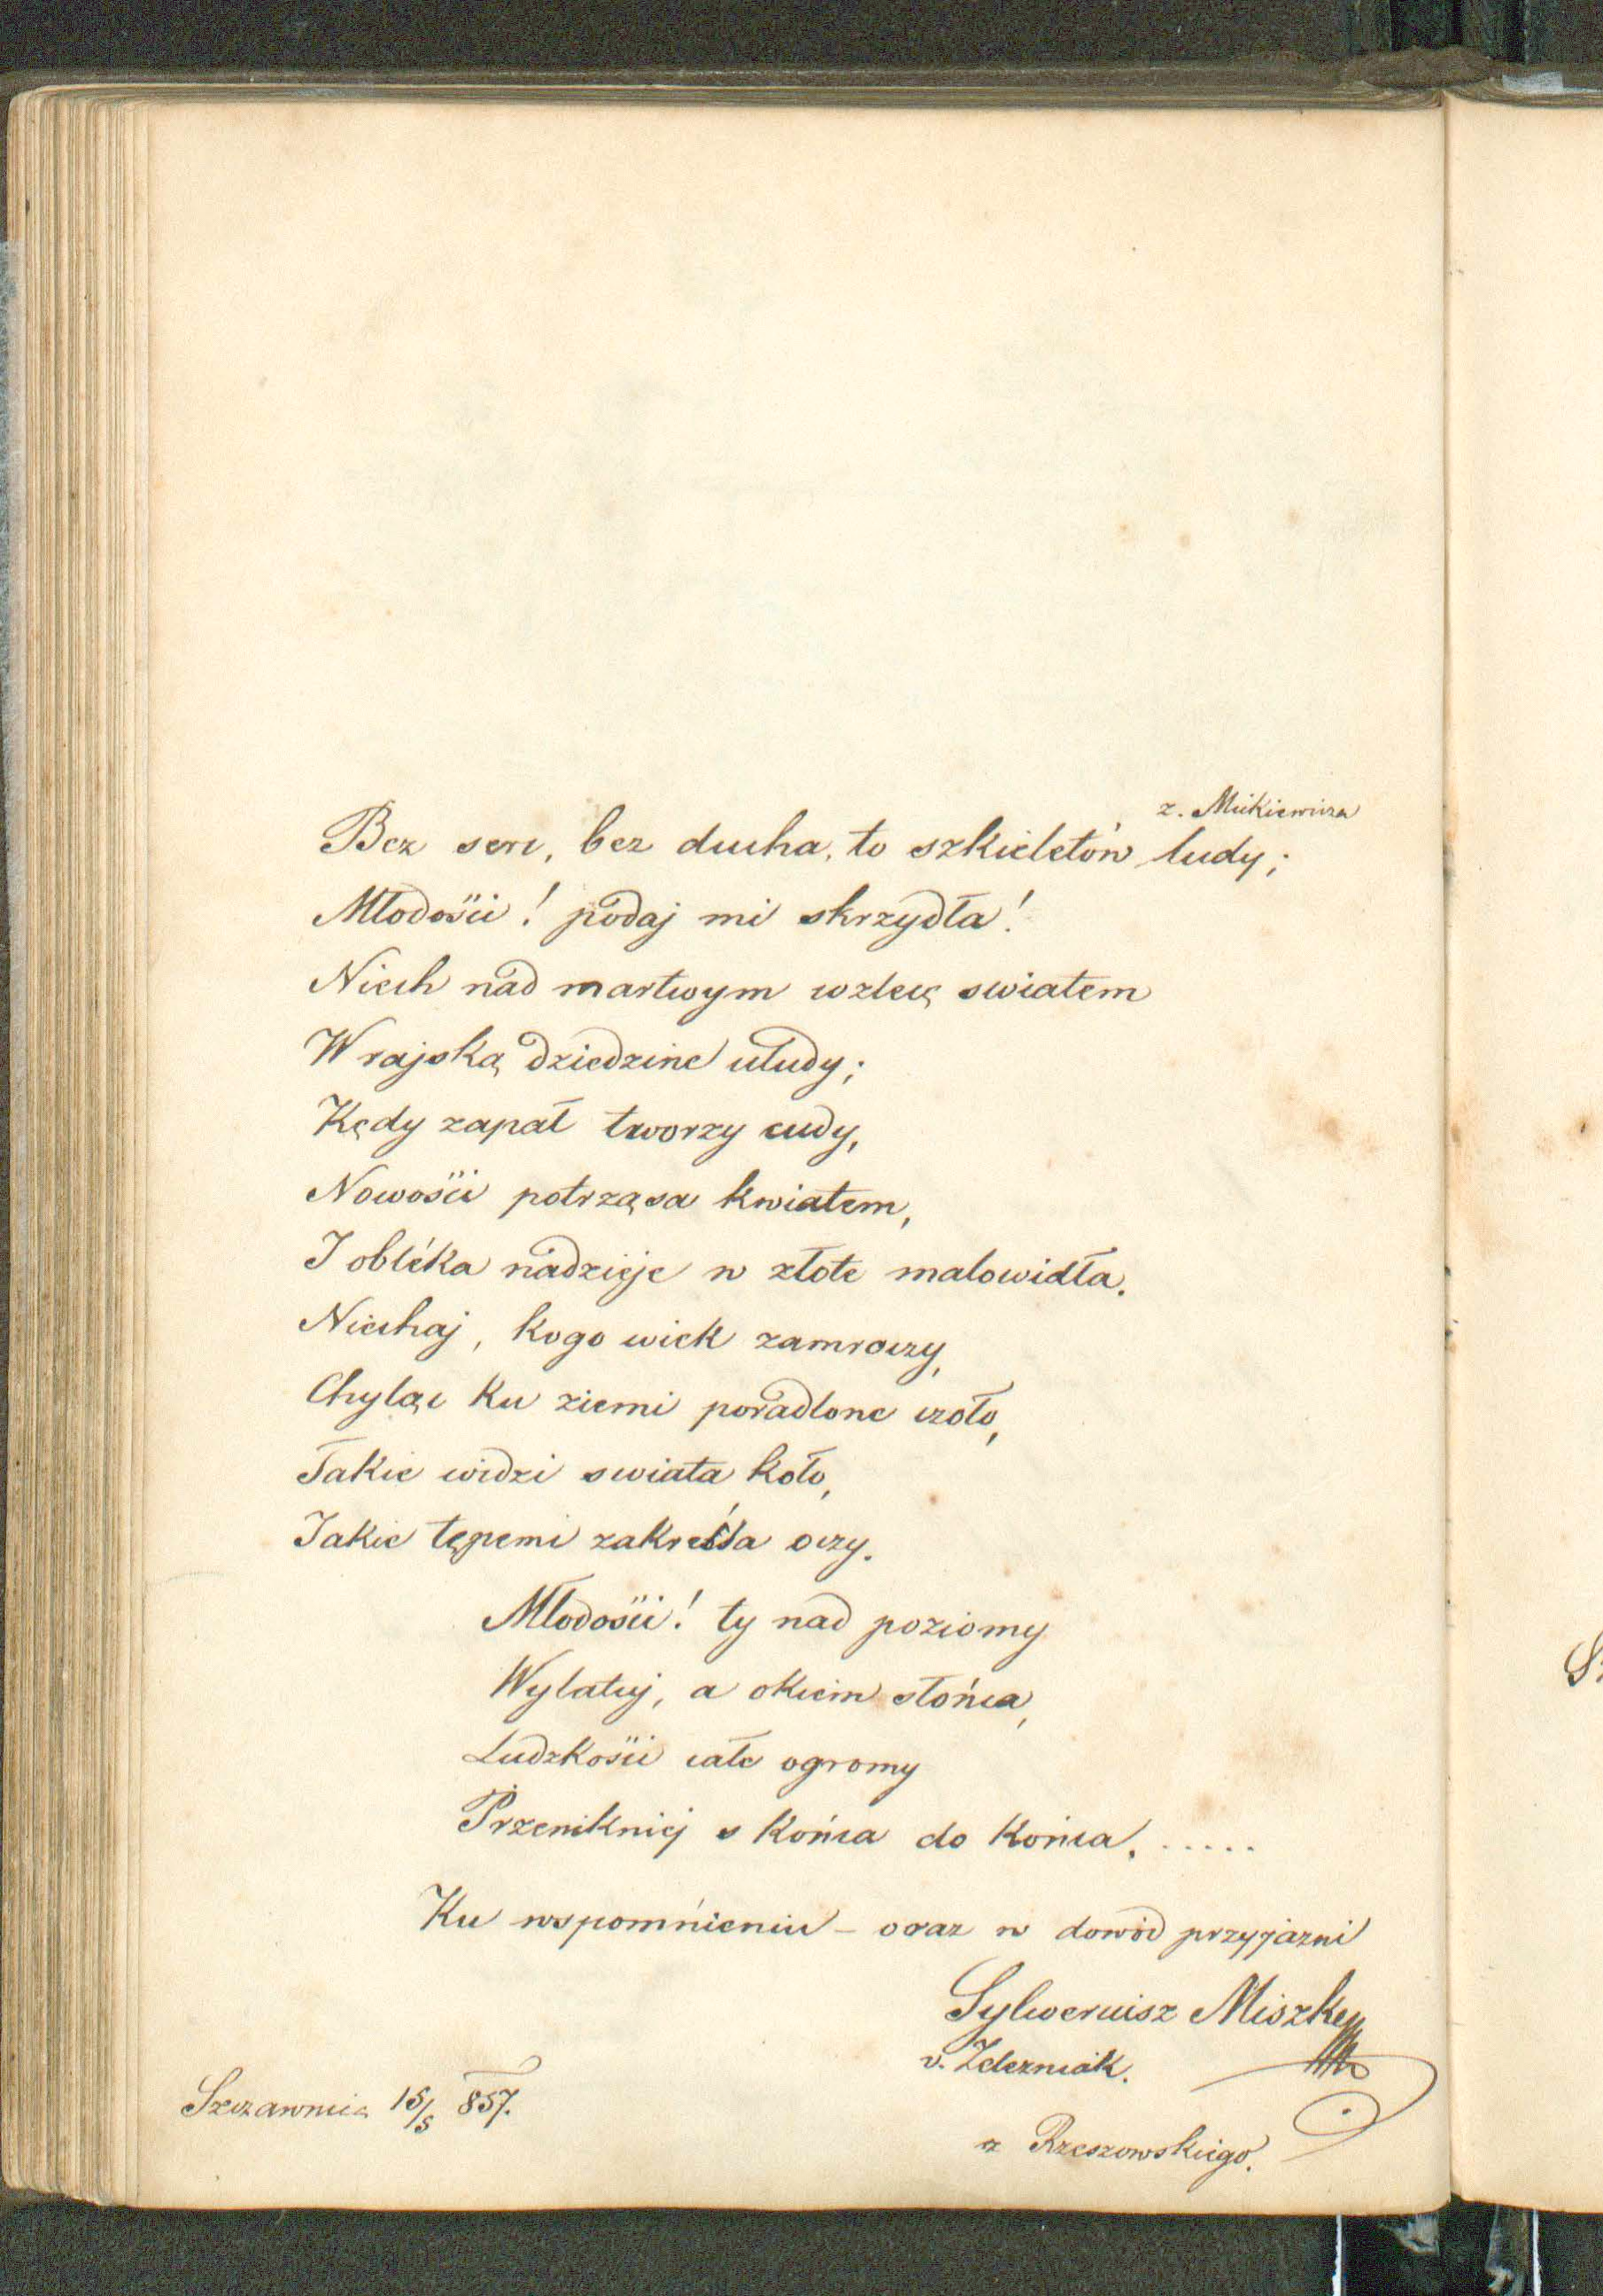 z. Mickiewicza
Bez serc, bez ducha, to szkieletów ludy;
Młodości! podaj mi skrzydła!
Niech nad martwym wzlecę swiatem
W rajską dziedzine ułudy;
Kędy zapał tworzy cudy,
Nowości potrząsa kwiatem,
I obléka nadzieje w złote malowidła.
Niechaj, kogo wiek zamroczy,
Chyląc ku ziemi poradlone czoło,
Takie widzi swiata koło,
Jakie tępemi zakreśla oczy.
Młodości! ty nad poziomy
Wylatuj, a okiem słońca,
Ludzkości całe ogromy
Przeniknij s końca do końca, .....
Ku wspomnieniu – oraz w dowód przyjazni
Sylweriusz Miszky
v. Zelezniak.
Szczawnica 15/5 857.
z Rzeszowskiego.